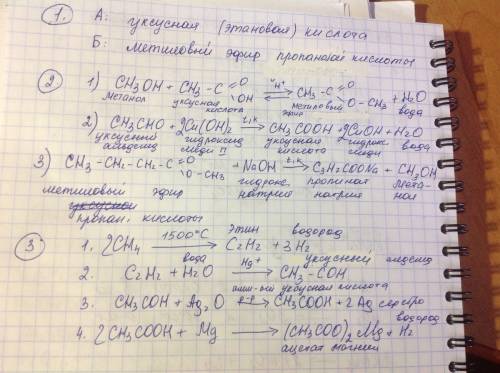 1. А: уксусная (этановая) кислота
Б: Метиловый эфир пропановой кислоты
2 1) CH₃OH + CH₃-C =O OH ⇄ "H⁺" CH₃-C =O O-CH₃ + H₂O
метанол уксусная кислота метиловый эфир вода
2) CH₃CHO + 2Cu(OH)₂ t,к→ CH₃COOH + 2CuOH + H₂O
уксусный альдегид гидроксид меди II уксусная кислота гидрок. меди вода
3) CH₃-CH₂-CH₂-C =O O-CH₃ + NaOH t,к→ C₃H₇COONa + CH₃OH
метиловый эфир гидрокс. натрия натрия мета-
уксусной нол
пропан. кислоты
3 1. 2CH₄ 1500°C→ C₂H₂ + 3H₂
этин водород
2. C₂H₂ + H₂O Hg⁺→ CH₃-COH
вода уксусный альдегид
уксусная кислота
3. CH₃COH + Ag₂O р-р→ CH₃COOH + 2Ag серебро
4. 2CH₃COOH + Mg → (CH₃COO)₂Mg + H₂
водород
ацетат магния